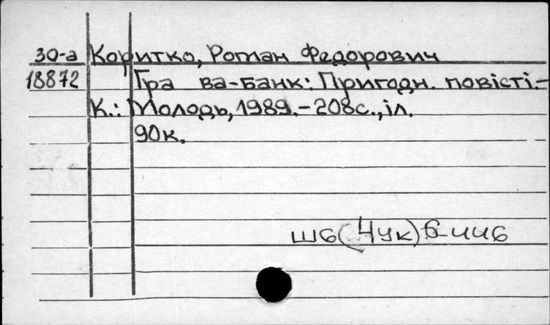 30-а Коритко, Роман Федорович
18872 Гра ва-банк: Пригодн. повісті.-
К.: Молодь, 1989.-208с., іл.
90к.
шб(4ук)6-ччб